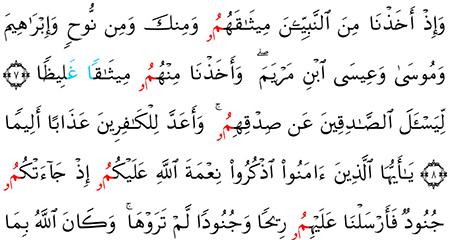 وَإِذْ أَخَذْنَا مِنَ ٱلنَّبِيِّـۧنَ مِيثَـٰقَهُمُۥ وَمِنكَ وَمِن نُّوحٍ وَإِبْرَٰهِيمَ
وَمُوسَىٰ وَعِيسَى ٱبْنِ مَرْيَمَ ۖ وَأَخَذْنَا مِنْهُمُۥ مِيثَـٰقًا غَلِيظًا ﴿٧﴾
لِّيَسْـَٔلَ ٱلصَّـٰدِقِينَ عَن صِدْقِهِمُۥ ۚ وَأَعَدَّ لِلْكَـٰفِرِينَ عَذَابًا أَلِيمًا
﴿٨﴾ يَـٰٓأَيُّهَا ٱلَّذِينَ ءَامَنُوا۟ ٱذْكُرُوا۟ نِعْمَةَ ٱللَّهِ عَلَيْكُمُۥ إِذْ جَآءَتْكُمُۥ
جُنُودٌ فَأَرْسَلْنَا عَلَيْهِمُۥ رِيحًا وَجُنُودًا لَّمْ تَرَوْهَا ۚ وَكَانَ ٱللَّهُ بِمَا